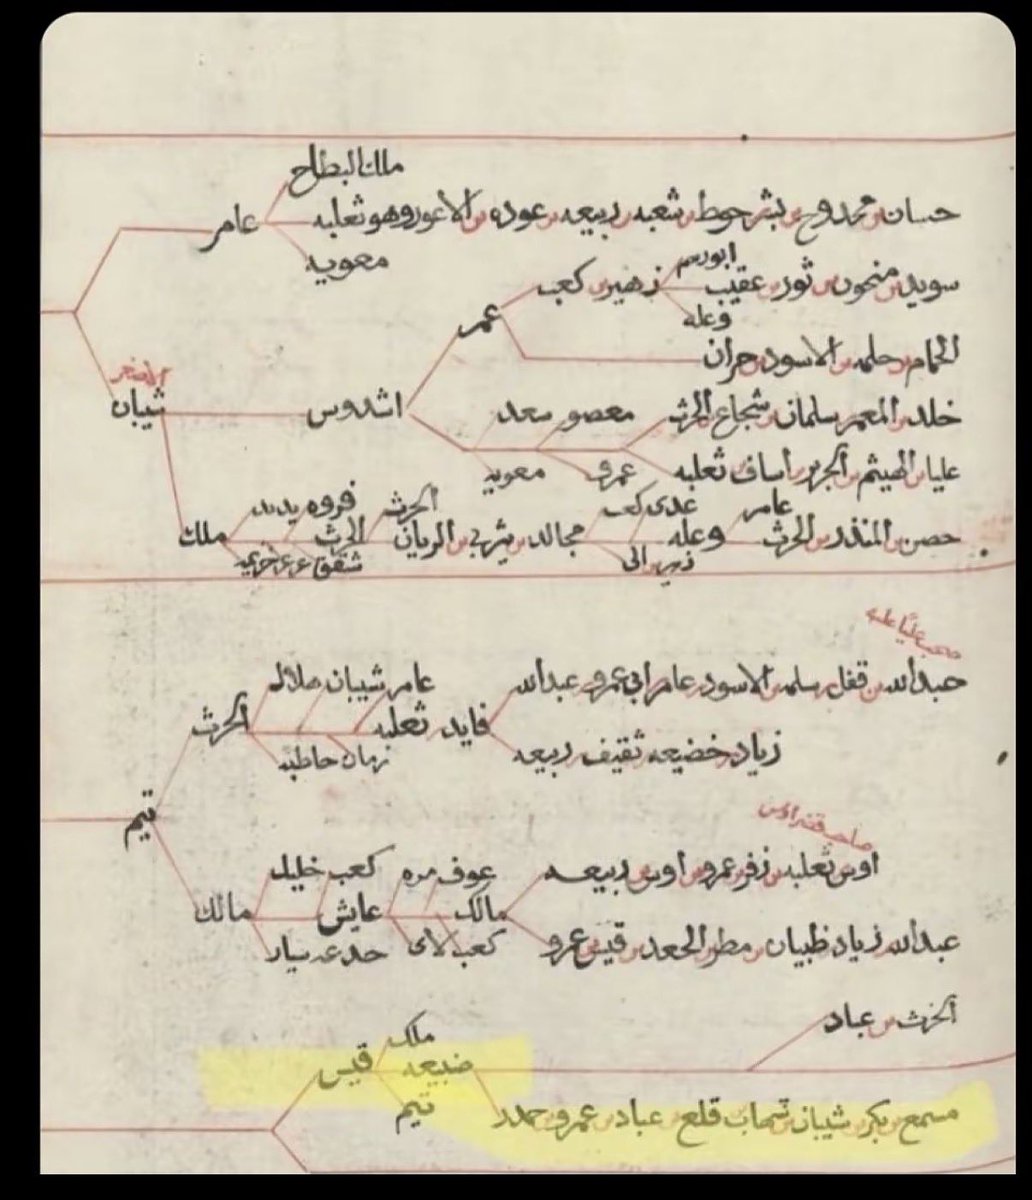 ملك البطاح
حسان بن محدوح بن بشر بن حوط بن شعبه بن ربيعه بن عوده بن الاعور وهو ثعلبه
عامر
معويه
ابورسم
سويد بن منحوں بن ثور بن عقيب
زهير بن كعب
وعله
عمر
الحمام بن حلمه بن الاسود بن حران
الاصغر
شيبان
اشدوس
سعد
خلد بن المعمر بن سلمان بن شجاع بن الحرث
معويه
عمرو
عليا بن الهيثم بن الجرير بن اساف بن ثعلبه
عامر
عدى كعب
الحرث
فروه
حصن بن المنذر بن الحرث
وعله
مجالد بن يثربي بن الريان
الحرث
ملك
شقق
حبدالله بن قفل بن سلمه بن الاسود بن عامر بن ابي عمرو بن عبدالله
عامر شيبان هلال
فايد بن ثعلبه
الحرث
زياد بن خضيعه بن ثقيف بن ربيعه
زمان حاطبه
تيم
اوس بن ثعلبه بن زفر بن عمرو بن اوس بن ربيعه
عوف مره
كعب خليل
مالك
عايش
مالك
عبدالله بن زياد بن ظبيان بن مطر بن الجعد بن قيس بن عمرو
كعب لاى
سيار
الحرث بن عباد
ملك
قيس
ضبيعه
تيم
مسمع بن بكر بن شيبان بن شهاب بن قلع بن عباد بن عمرو بن حمدر